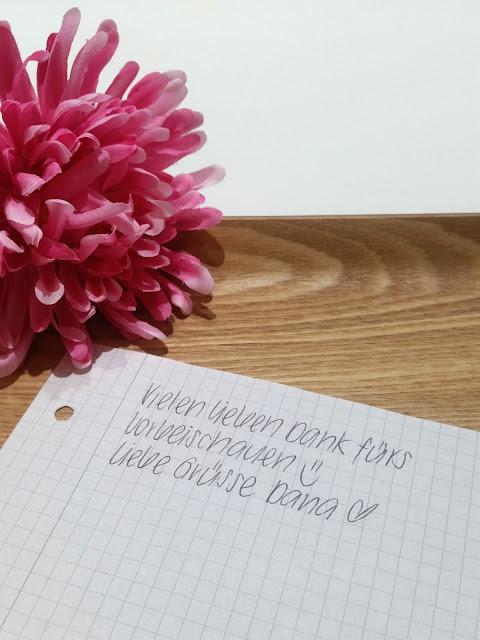 Vielen lieben Dank fürs
Vorbeischauen ☺
Liebe Grüsse Dana ♡